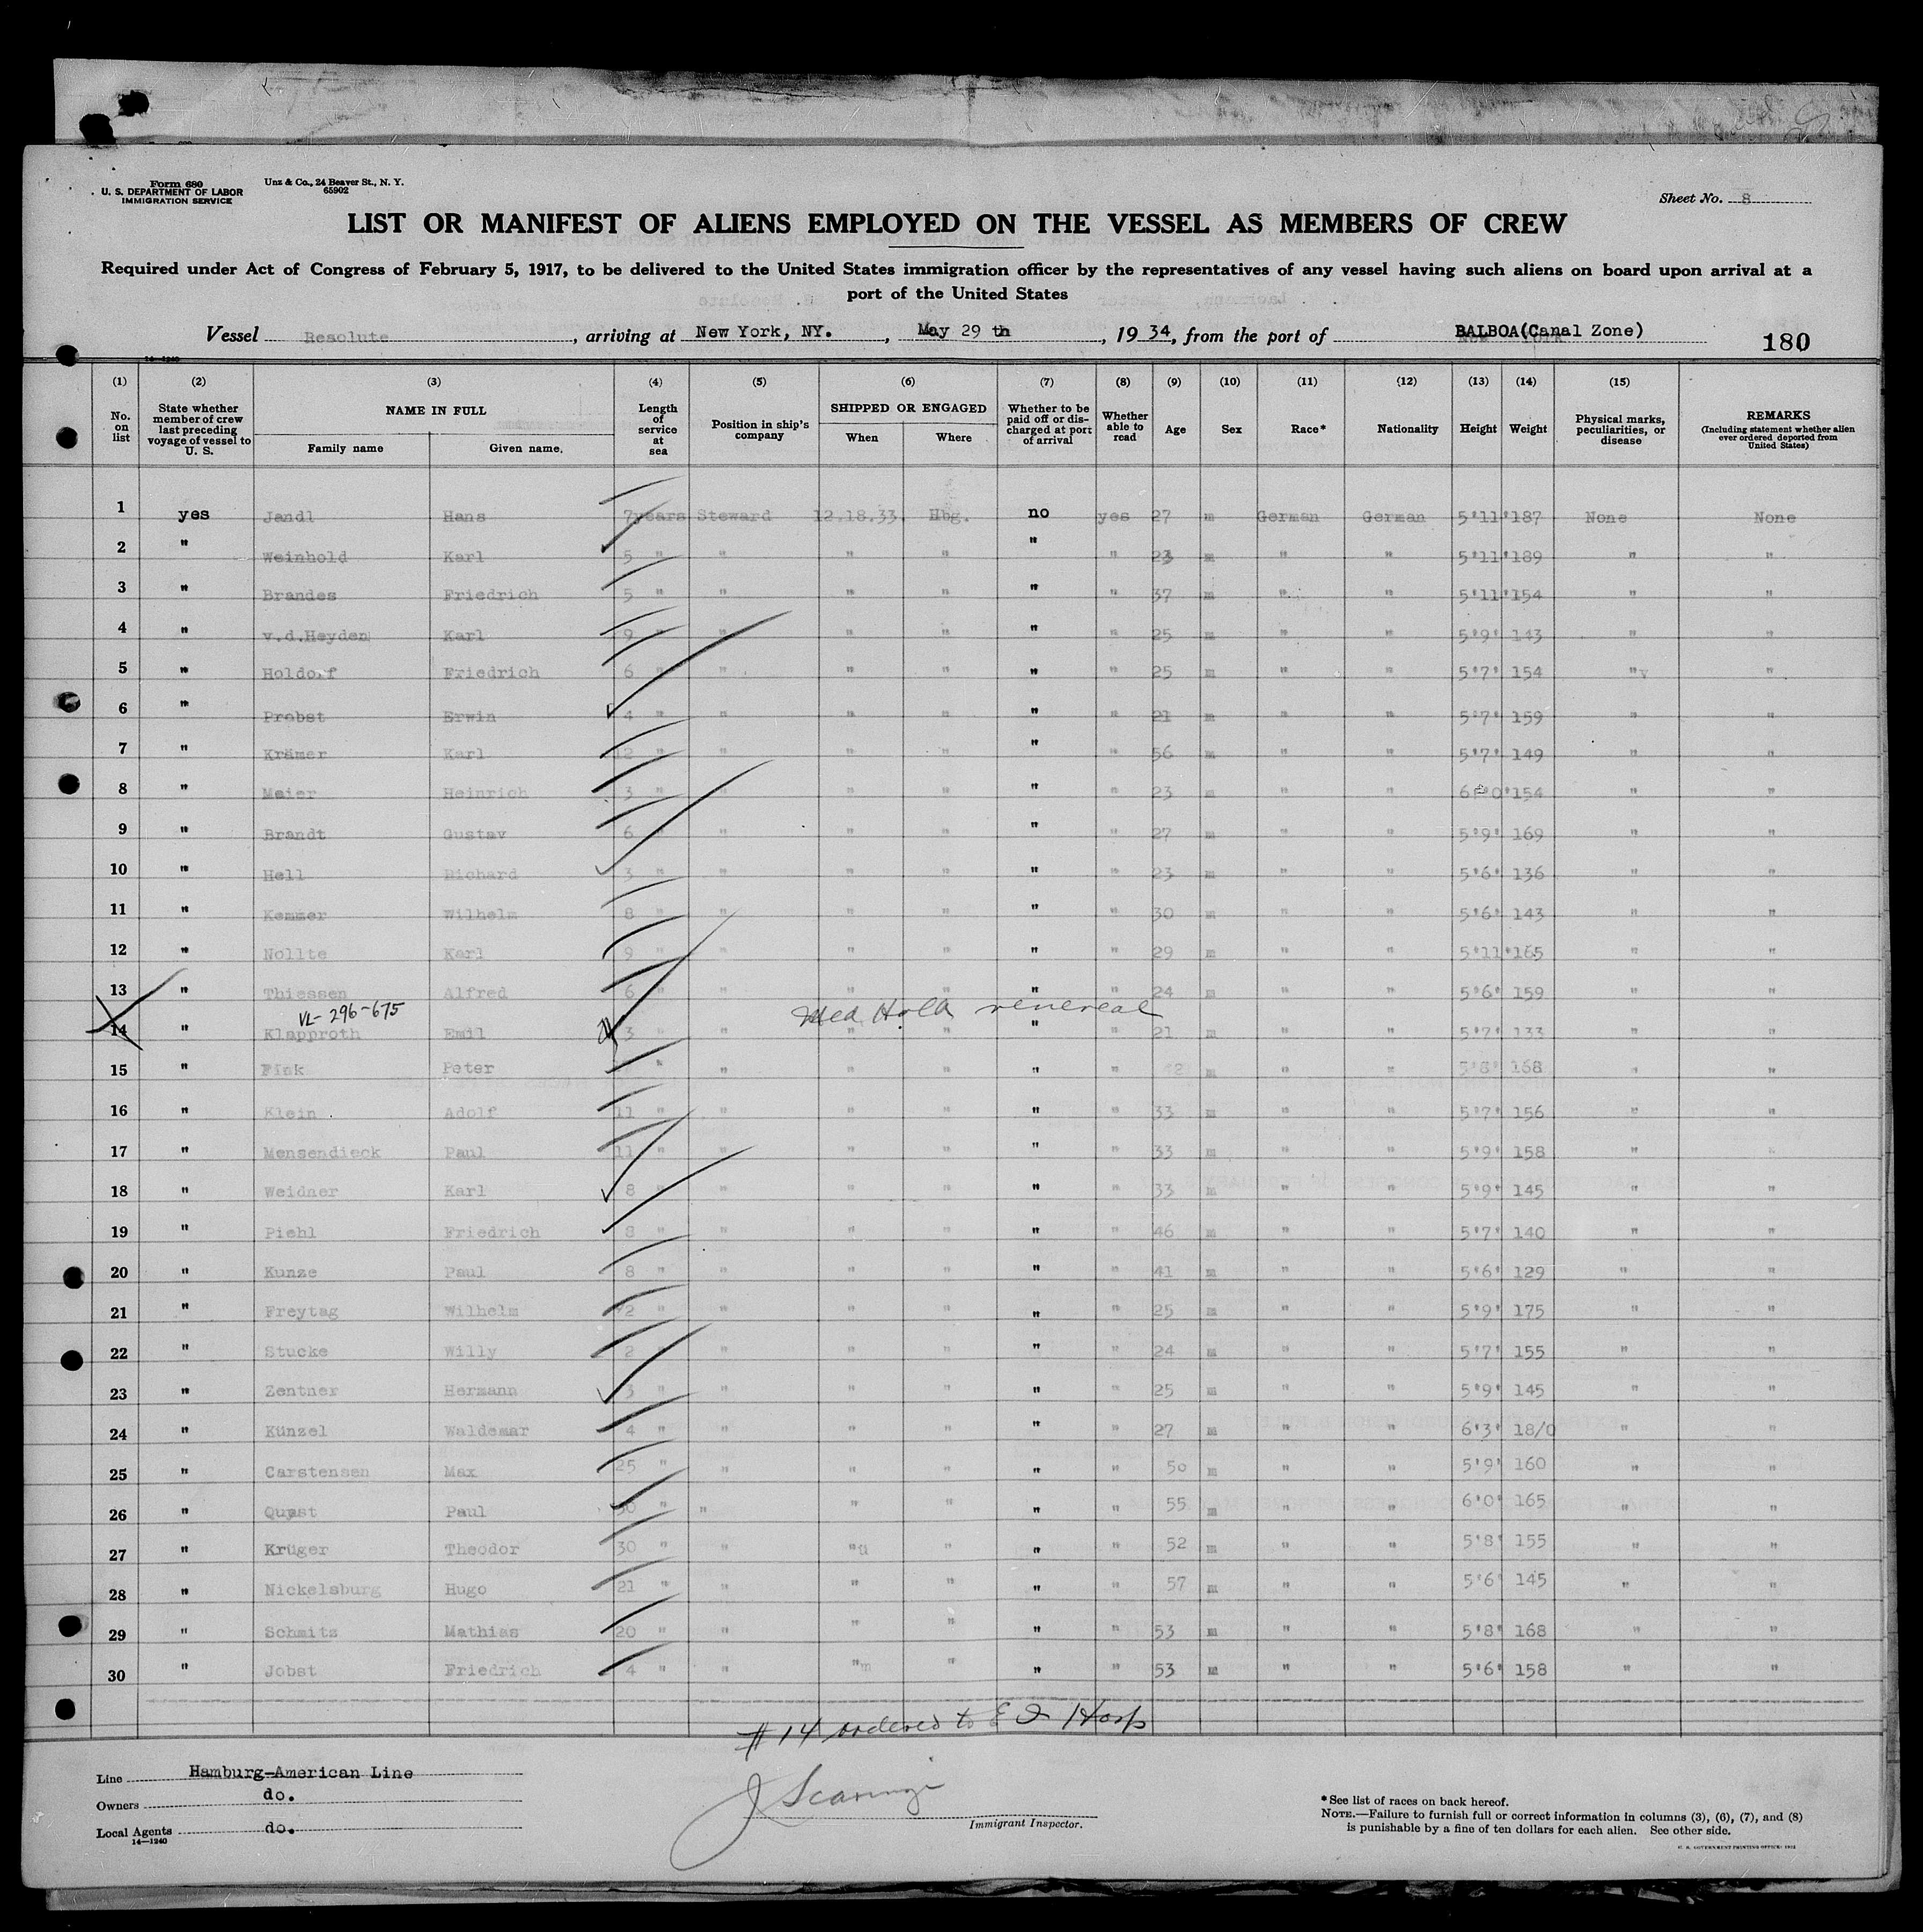 Form 680
U. S. DEPARTMENT OF LABOR
IMMIGRATION SERVICE
Unz & Co., 24 Beaver St., N. Y.
65902
Sheet No. 8
LIST OR MANIFEST OF ALIENS EMPLOYED ON THE VESSEL AS MEMBERS OF CREW
Required under Act of Congress of February 5, 1917, to be delivered to the United States immigration officer by the representatives of any vessel having such aliens on board upon arrival at a
port of the United States
Vessel Resolute, arriving at New York, NY., May 29 th, 1934, from the port of BALBOA(Canal Zone) 180
14—1240
(1) (2) (3) (4) (5) (6) (7) (8) (9) (10) (11) (12) (13) (14) (15)
No. on list State whether member of crew last preceding voyage of vessel to U. S. NAME IN FULL Family name Given name. Length of service at sea Position in ship's company SHIPPED OR ENGAGED When Where Whether to be paid off or discharged at port of arrival Whether able to read Age Sex Race* Nationality Height Weight Physical marks, peculiarities, or disease REMARKS (Including statement whether alien ever ordered deported from United States)
1 yes Jandl Hans 7years Steward 12.18.33. Hbg. no yes 27 m German German 5'11' 187 None None
2 " Weinhold Karl 5 " " " " " " 23 m " " 5'11' 189 " "
3 " Brandes Friedrich 5 " " " " " " 37 m " " 5'11' 154 " "
4 " v.d.Heyden Karl 9 " " " " " " 25 m " " 5'9' 143 " "
5 " Holdorf Friedrich 6 " " " " " " 25 m " " 5'7' 154 " "
6 " Probst Erwin 4 " " " " " " 21 m " " 5'7' 159 " "
7 " Krämer Karl 12 " " " " " " 56 m " " 5'7' 149 " "
8 " Maier Heinrich 3 " " " " " " 23 m " " 6'0' 154 " "
9 " Brandt Gustav 6 " " " " " " 27 m " " 5'9' 169 " "
10 " Hell Richard 3 " " " " " " 23 m " " 5'6' 136 " "
11 " Kemmer Wilhelm 8 " " " " " " 30 m " " 5'6' 143 " "
12 " Nollte Karl 9 " " " " " " 29 m " " 5'11' 165 " "
13 " Thiessen Alfred 6 " " " " " " 24 m " " 5'6' 159 " "
VL- 296-675 Med Hold venereal
14 " Klapproth Emil 3 " " " " " " 21 m " " 5'7' 133 " "
15 " Fink Peter " " " " " " m " " 5'8' 168 " "
16 " Klein Adolf 11 " " " " " " 33 m " " 5'7' 156 " "
17 " Mensendieck Paul 11 " " " " " " 33 m " " 5'9' 158 " "
18 " Weidner Karl 8 " " " " " " 33 m " " 5'9' 145 " "
19 " Piehl Friedrich 8 " " " " " " 46 m " " 5'7' 140 " "
20 " Kunze Paul 8 " " " " " " 41 m " " 5'6' 129 " "
21 " Freytag Wilhelm 2 " " " " " " 25 m " " 5'9' 175 " "
22 " Stucke Willy 2 " " " " " " 24 m " " 5'7' 155 " "
23 " Zentner Hermann 3 " " " " " " 25 m " " 5'9' 145 " "
24 " Künzel Waldemar 4 " " " " " " 27 m " " 6'3' 18/0 " "
25 " Carstensen Max 25 " " " " " " 50 m " " 5'9' 160 " "
26 " Quast Paul 30 " " " " " " 55 m " " 6'0' 165 " "
27 " Krüger Theodor 30 " " " " " " 52 m " " 5'8' 155 " "
28 " Nickelsburg Hugo 21 " " " " " " 57 m " " 5'6' 145 " "
29 " Schmitz Mathias 20 " " " " " " 53 m " " 5'8' 168 " "
30 " Jobst Friedrich 4 " " " " " " 53 m " " 5'6' 158 " "
#14 ordered to E I Hosp
Line Hamburg-American Line
Owners do.
Local Agents do.
14—1240
J Scaringi
Immigrant Inspector.
*See list of races on back hereof.
NOTE.—Failure to furnish full or correct information in columns (3), (6), (7), and (8)
is punishable by a fine of ten dollars for each alien. See other side.
U. S. GOVERNMENT PRINTING OFFICE: 1932